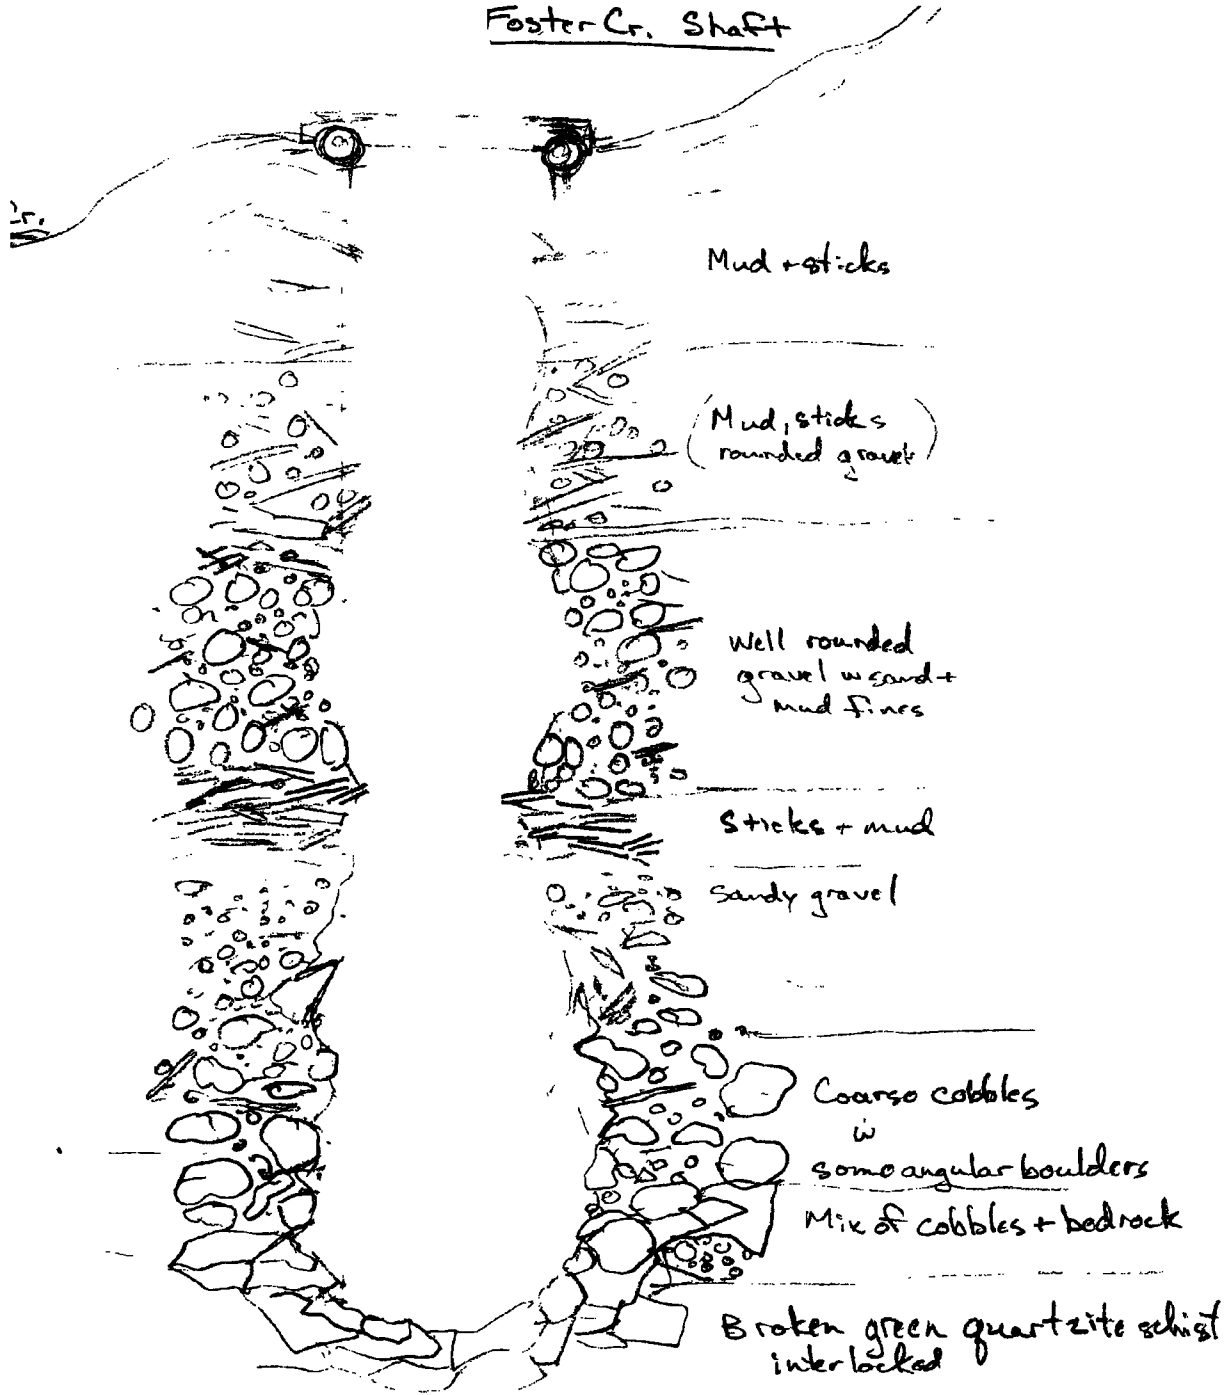 Foster Cr. Shaft
Cr.
Mud + sticks
(Mud, sticks
rounded gravel)
Well rounded
gravel w sand +
mud fines
Sticks + mud
Sandy gravel
Coarse cobbles
w
some angular boulders
Mix of cobbles + bedrock
Broken green quartzite schist
interlocked